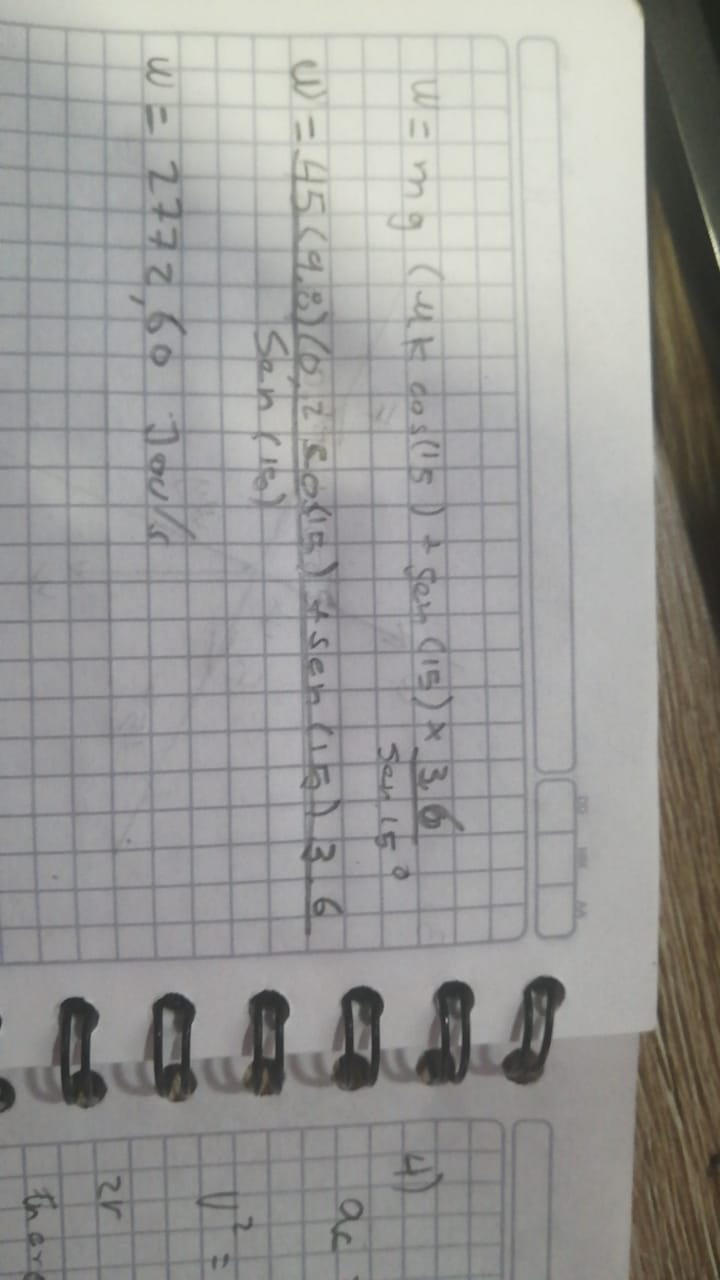 w = mg (μk cos(15) + sen (15) × 3.6
sen 15°
w = 45 (9,8) (0,2 cos(15) + sen (15) 3.6
Sen (15)
w = 2772,60 Joul's
4)
ac
V² =
2r